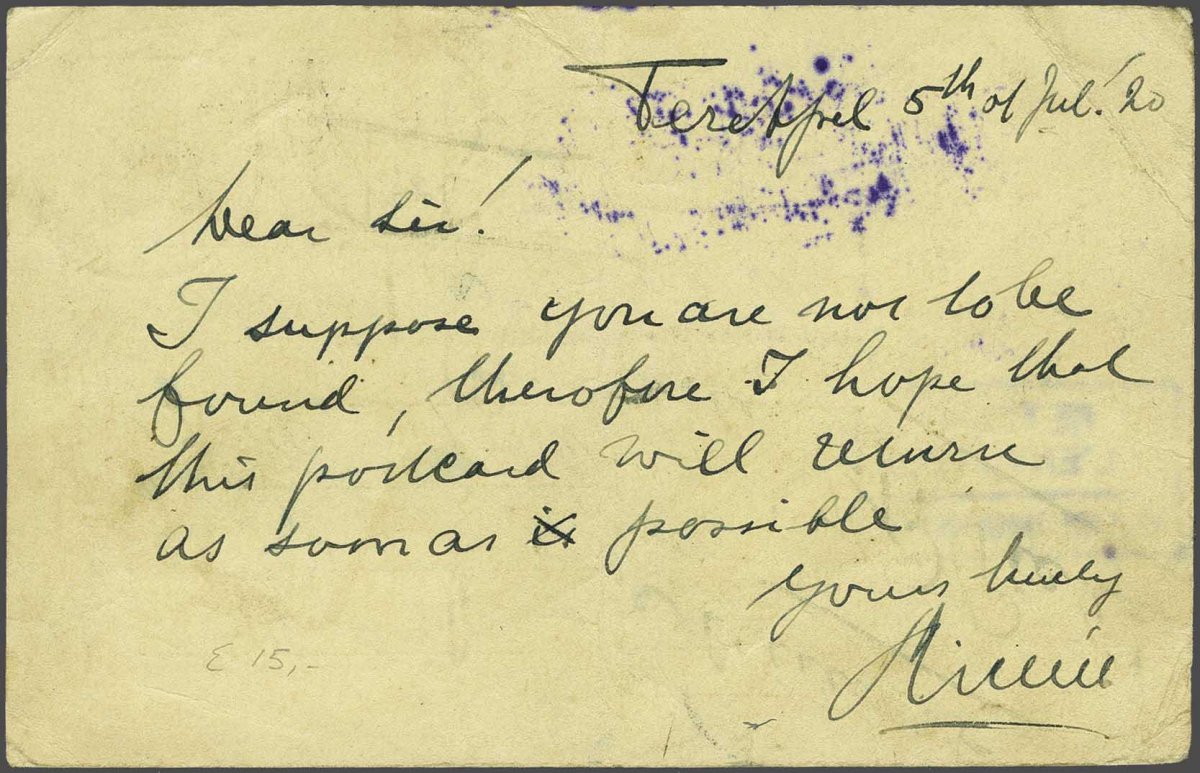 Ter Apel 5th of Jul. '20
Dear Sir!
I suppose you are not to be
found, therofore I hope that
this postcard will return
as soon as possible
Yours truly
15,-